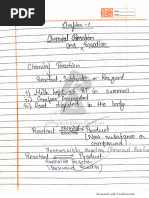 Chapter - 1
Chemical Reaction
and Equation
Chemical Reaction
Reactant, Substrate or Reagent
i) Milk boil at RT in summer
ii) Grapes Fermented
iii) Food digested in the body
Reactant Product
[New substance or
compound]
Irreversible Reaction (Forward Reaction)
Reactant Product
Reversible Reaction
(Backward Reaction)
Scanned with CamScanner